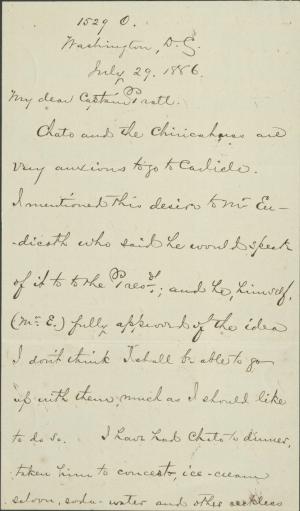 1529 O.
Washington, D.C.
July 29. 1886.
My dear Captain Pratt.
Chato and the Chiricahuas are
very anxious to go to Carlisle.
I mentioned this desire to Mr En-
-dicott who said he would speak
of it to to the Prest.; and he, himself,
(Mr. E.) fully approved of the idea
I don't think I shall be able to go
up with them, much as I should like
to do so. I have had Chato to dinner,
taken him to concert, ice-cream
saloon, soda-water and other reckless